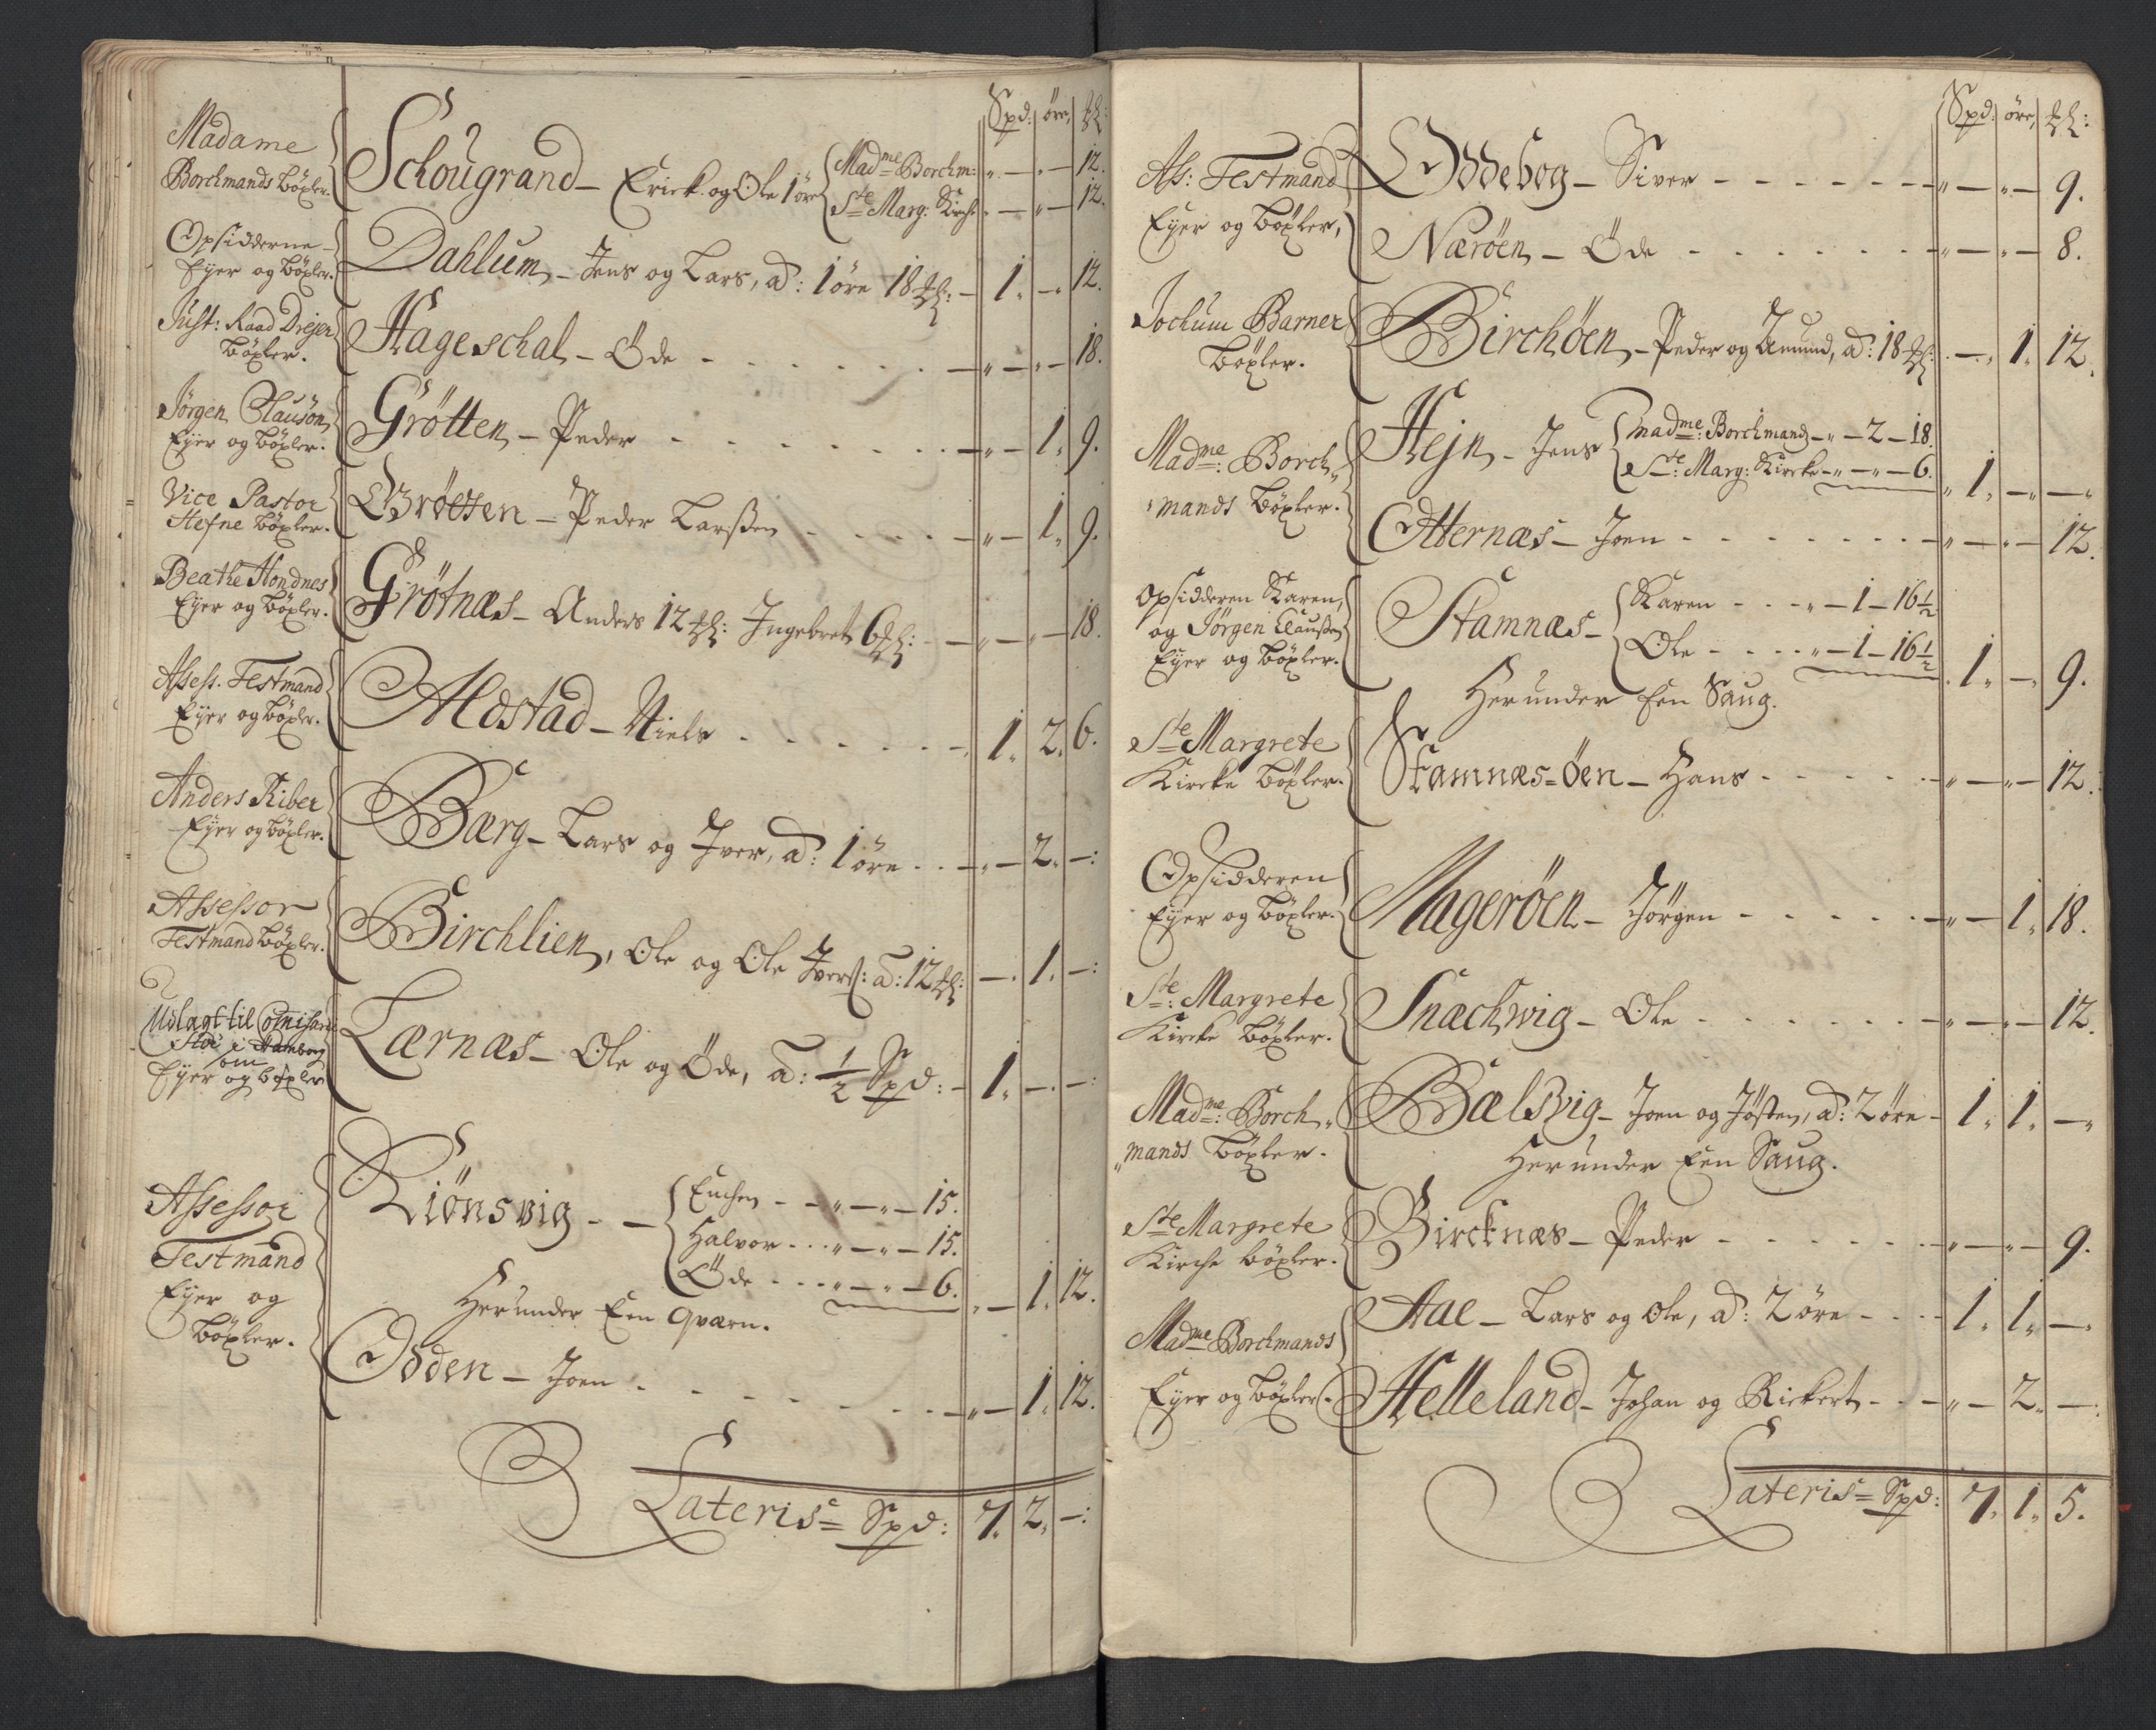 Spd: öre, ℔:
Madame
Borchmands böxler.
Schougrand – Erick og Ole 1 öre
Madme Borchm: „ – „ – 12.
Ste Marg: Kirche „ – „ – 12.
Opsidderne
Eyer og böxler.
Dahlum – Jens og Lars, ad: 1 öre 18 ℔: – 1. – 12.
Just: Raad Drejer
böxler.
Hageschal – Öde – „ – „ – 18.
Jörgen Clausön
Eyer og böxler.
Grötten – Peder – „ – 1. 9.
Vice Pastor
Hefne böxler.
Grötten – Peder Larssen – „ – 1. 9.
Beathe Hondnes
Eyer og böxler.
Grötnæs – Anders 12 ℔: Ingebret 6 ℔: – „ – „ – 18.
Assess. Testmand
Eyer og böxler.
Alstad – Niels – 1. 2. 6.
Anders Riber
Eyer og böxler.
Bærg – Lars og Iver, ad: 1 öre – „ – 2. –:
Assessor
Testmand böxler.
Birchlien, Ole og Ole Ivers: ad: 12 ℔: – . 1. –:
Udlagt til
Eyer og böxler
Lærnæs – Ole og Öde, ad: 1/2 Spd: – 1. – . –:
Assessor
Testmand
Eyer og
böxler.
Kiönsvig – –
– – „ – „ – 15.
Halvor – – „ – „ – 15.
Öde – – „ – „ – 6. „ – 1. 12.
Herunder Een qværn.
Odden – Joen – „ – 1. 12.
Lateris = Spd: 7. 2. –:
Spd: öre, ℔:
As: Testmand
Eyer og böxler,
Oddebog – Siver – „ – „ – 9.
Næröen – Öde – „ – „ – 8.
Jochum Barner
böxler.
Birchöen – Peder og Amund, ad: 18 ℔: – „ 1. 12.
Madme: Borch„
„mands böxler.
Hejn – Jens
Madme: Borchmands – „ – 2 – 18.
Ste: Marg: Kircke – „ – „ – 6. „ 1. – „ – „
Otternæs – Joen – „ – „ – 12.
Opsidderen Karen,
og Jörgen Claussen
Eyer og böxler.
Stamnæs –
Karen – – „ – 1 – 16 1/2
Ole – – „ – 1 – 16 1/2 1. – „ 9.
Herunder Een Saug.
Ste Margrete
Kircke böxler.
Stamnæs=öen – Hans – „ – „ – 12.
Opsidderen
Eyer og böxler.
Mageröen – Jörgen – „ – 1. 18.
Ste: Margrete
Kircke böxler.
Snachwig – Ole – „ – „ – 12.
Madme: Borch„
„mands böxler.
Bælsvig – Joen og Jösten, ad: 2 öre – 1. 1. – „
Herunder Een Saug.
Ste Margrete
Kirche böxler.
Bircknæs – Peder – „ – „ – 9.
Madme Borchmands
Eyer og böxler.
Aae – Lars og Ole, ad: 2 öre – 1. 1. – „
Helleland – Johan og Rickert – „ – 2. –:
Lateris = Spd: 7. 1. 5.